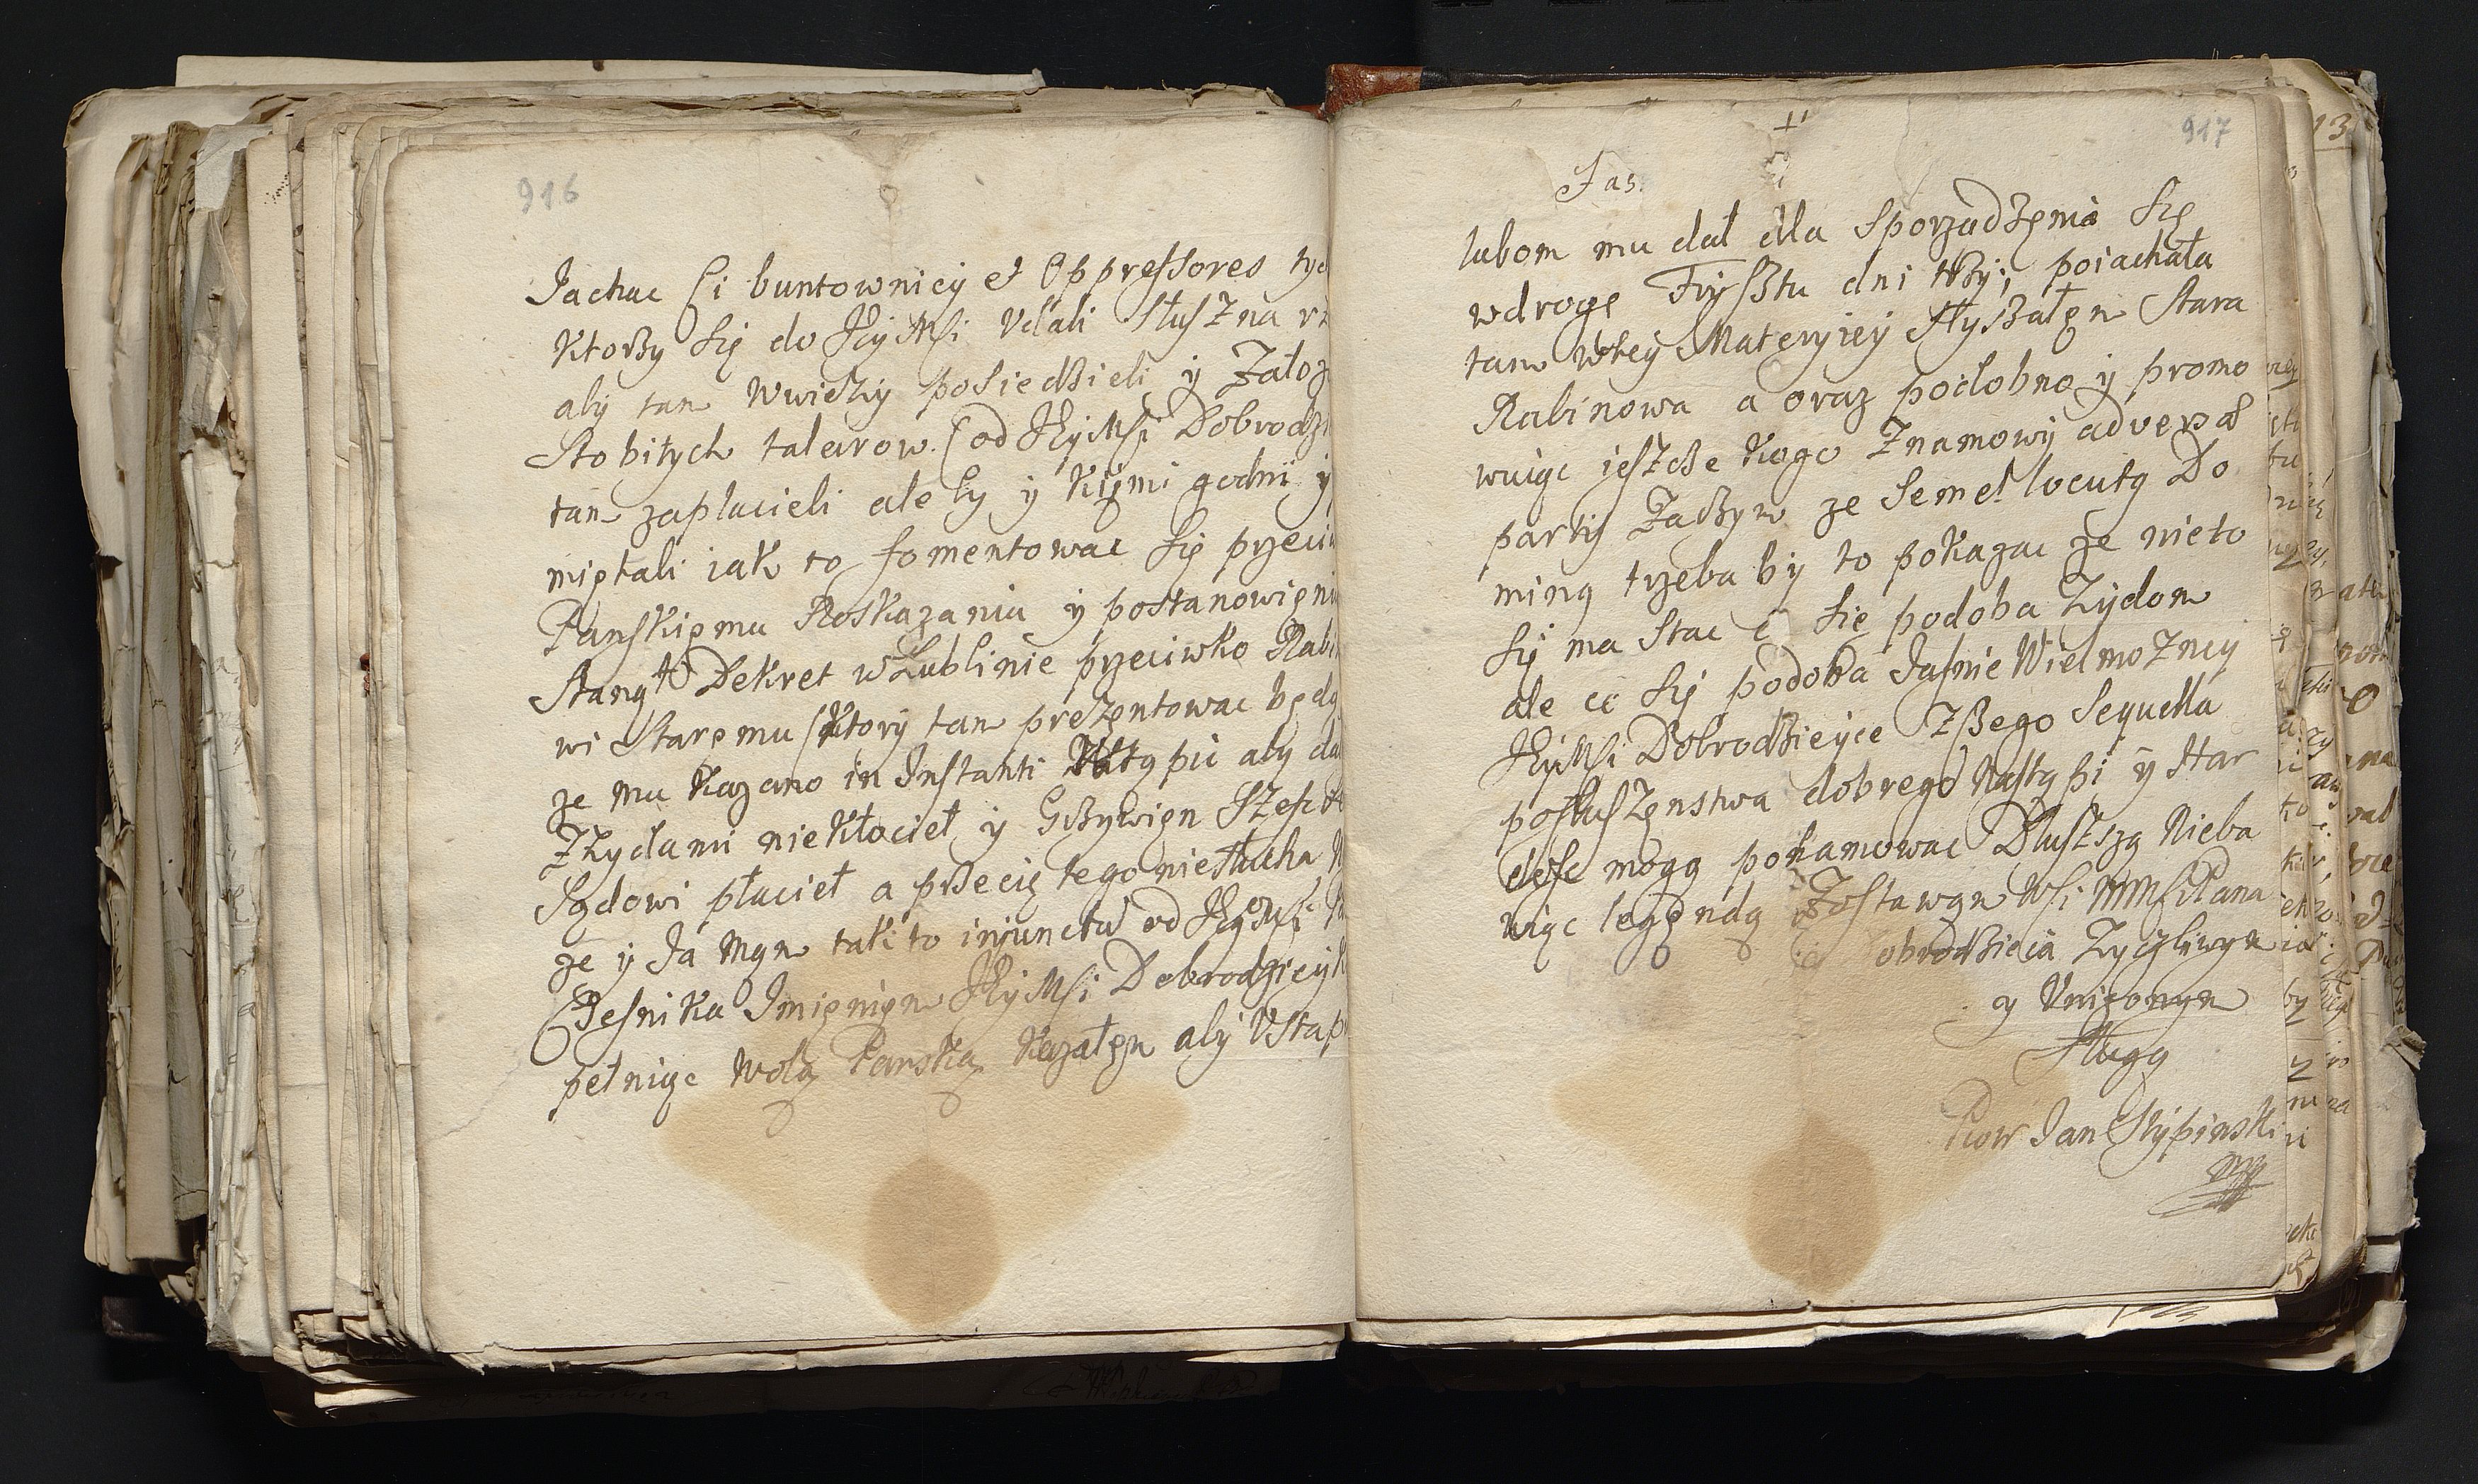 916
Jachac Ci buntownicy et Oppressores tyc
Ktorzy Się do JEyMsi Udali Słuszna rz
aby tam wwiezy posiedzieli y Załoz
Sto bitych talarow (od JEyMsi Dobrodzi
tam zaplacieli ale by y Kiymi godni y
miętali iak to fomentowac się przeciw
Panskięmu Roskazaniu y postanowięniu
Stanął Dekret w Lublinie przeciwko Rabi
wi Staręmu (Ktory tam prezęntowac będą
ze mu kazano in Instanti aby da
Z Zydami nie Kłocieł y Grzywięn Szesc
Sądowi płacieł a przecię tego nie słucha
ze y Ja Mąm taki to injunctū od JEyMsi
Pesnika Imięnięm JEyMsi Dobrodzieyk
pełniąc Wolą Panską Kazałęm aby Ustąp
917
Fas.
lubom mu dał dla Sporządzęnia Się
w drogę Frysztu dni trzy; poiachała
tam w tey Materyiey Słyszałęm Stara
Rabinowa a oraz podobno y promo
wuiąc ieszcze kogo Z namowy adversæ
party Zaczym ze Semel locutą Do
miną trzeba by to pokazac ze nie to
Się ma Stac co się podoba Zydom
ale co Się podoba Jasnie Wielmozney
JEyMsi Dobrodzieyce Z czego Sequella
posłuszęnstwa dobrego Nastąpi y Har
dosc mogą pohamowac Dluszszą Nieba
wiąc legęndą Zostawąm WMsi MMsi Pana
obrodzieia Zyczliwym
y Unizonym
Sługą
Piotr Jan Słypinski
13